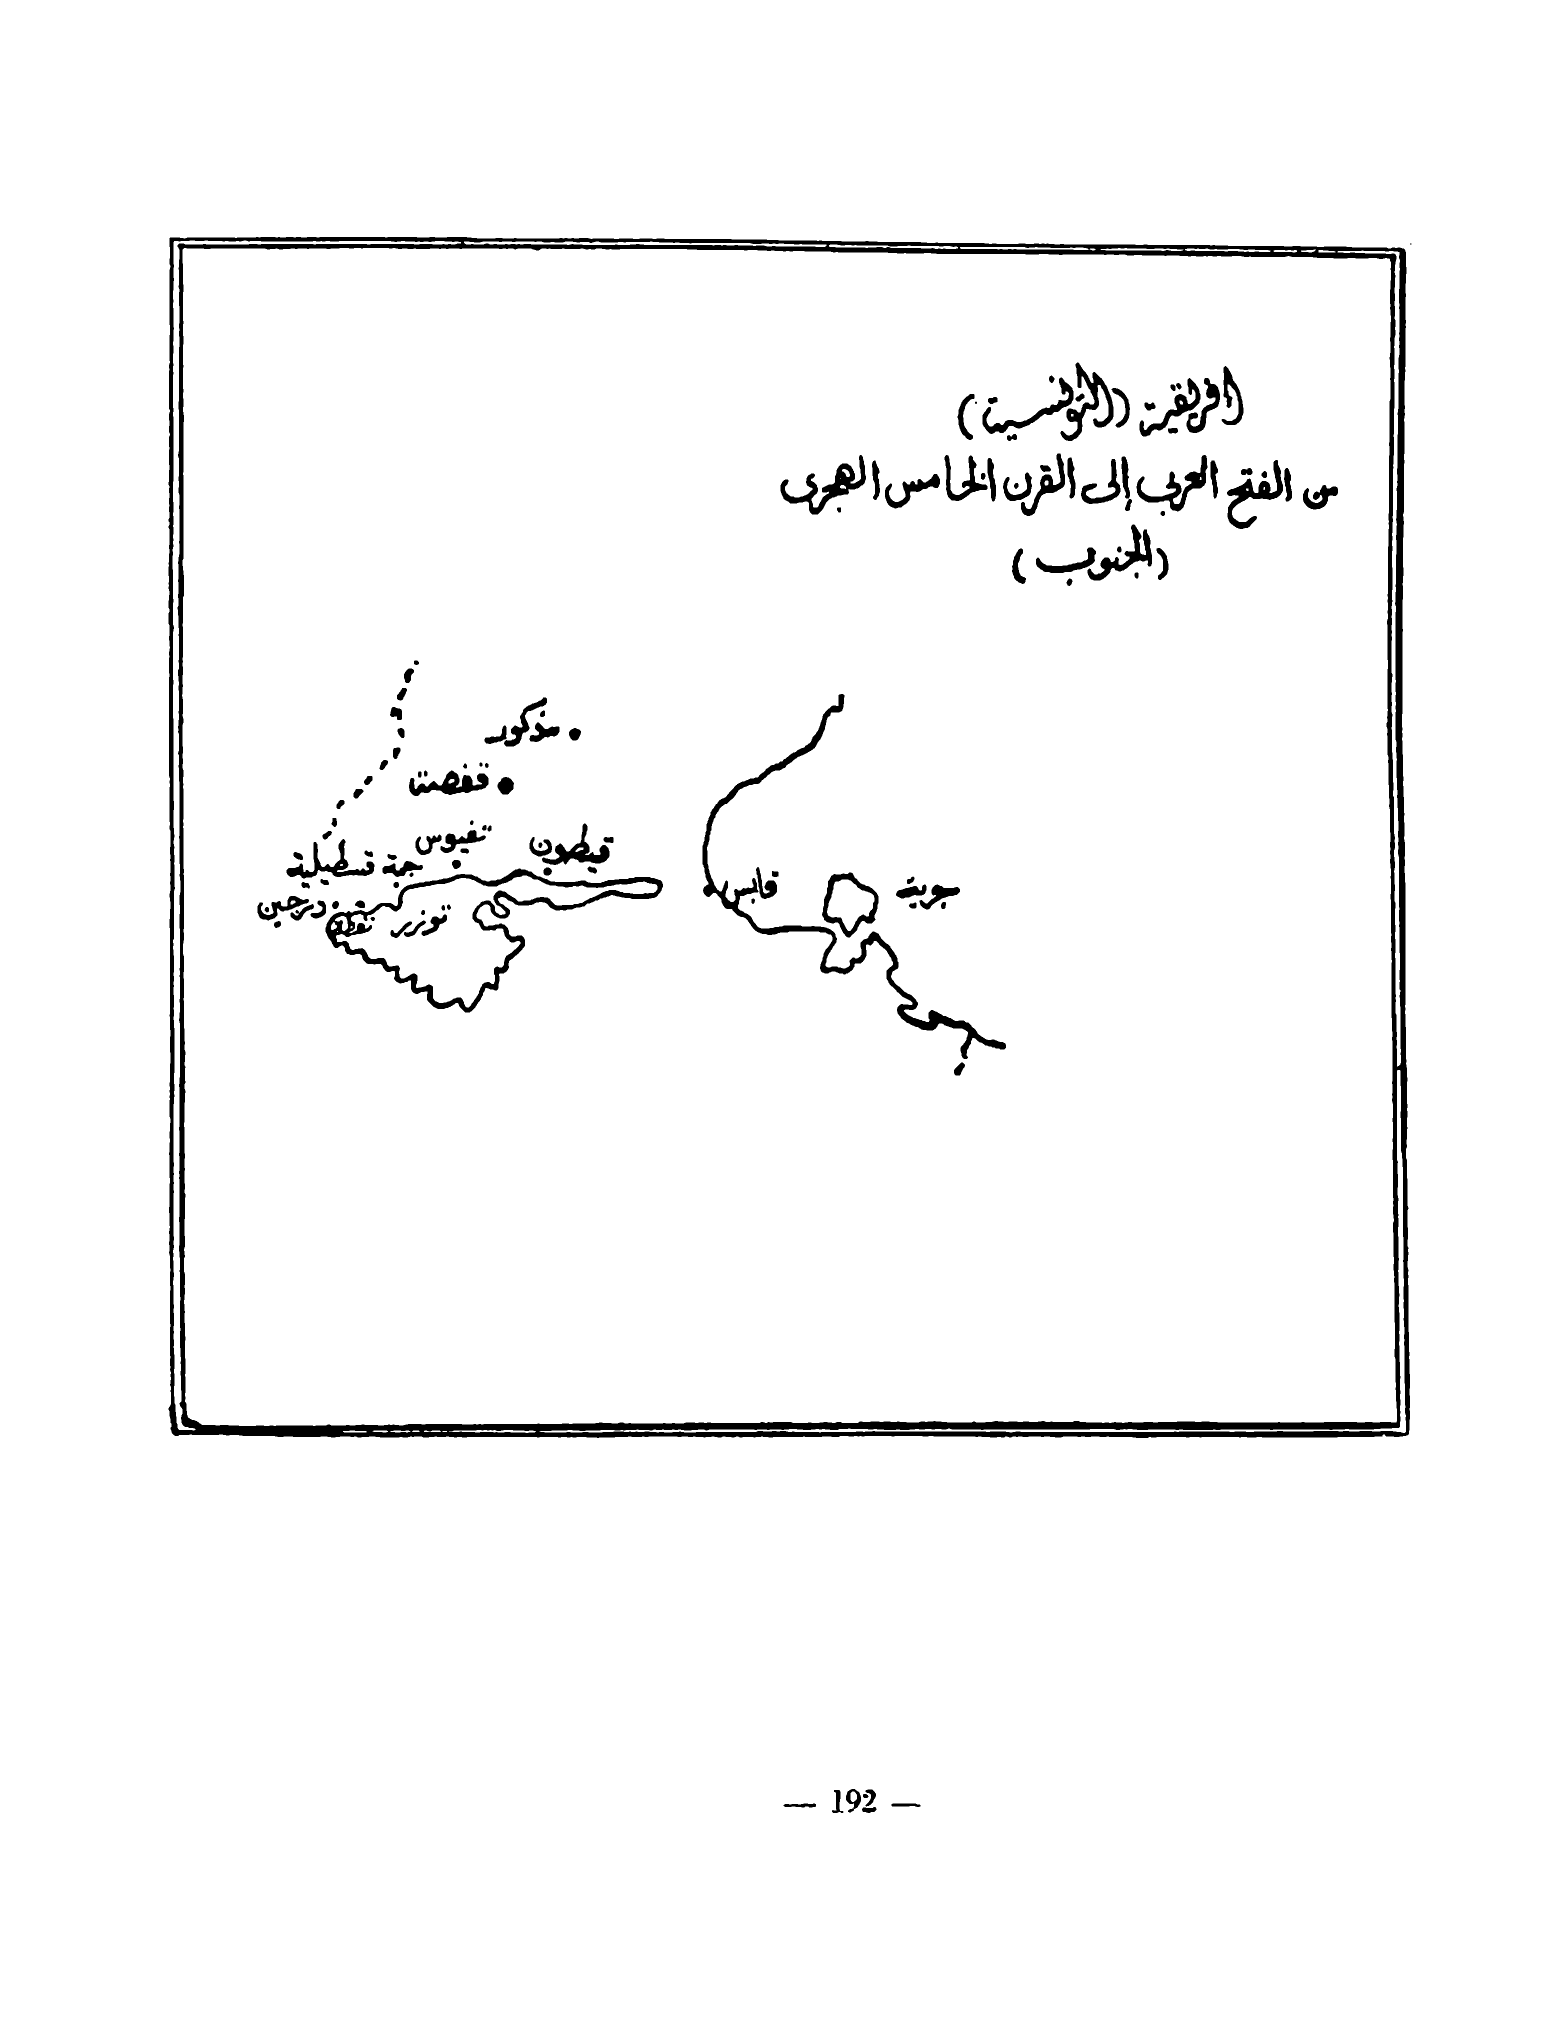 افريقية (التونسية)
من الفتح العربي إلى القرن الخامس الهجرى
(الجنوب)
مذكور
قفصة
تفيوس
قيطون
جمة قسطيلية
درجين
نفطة
توزر
قابس
جربة
— 192 —